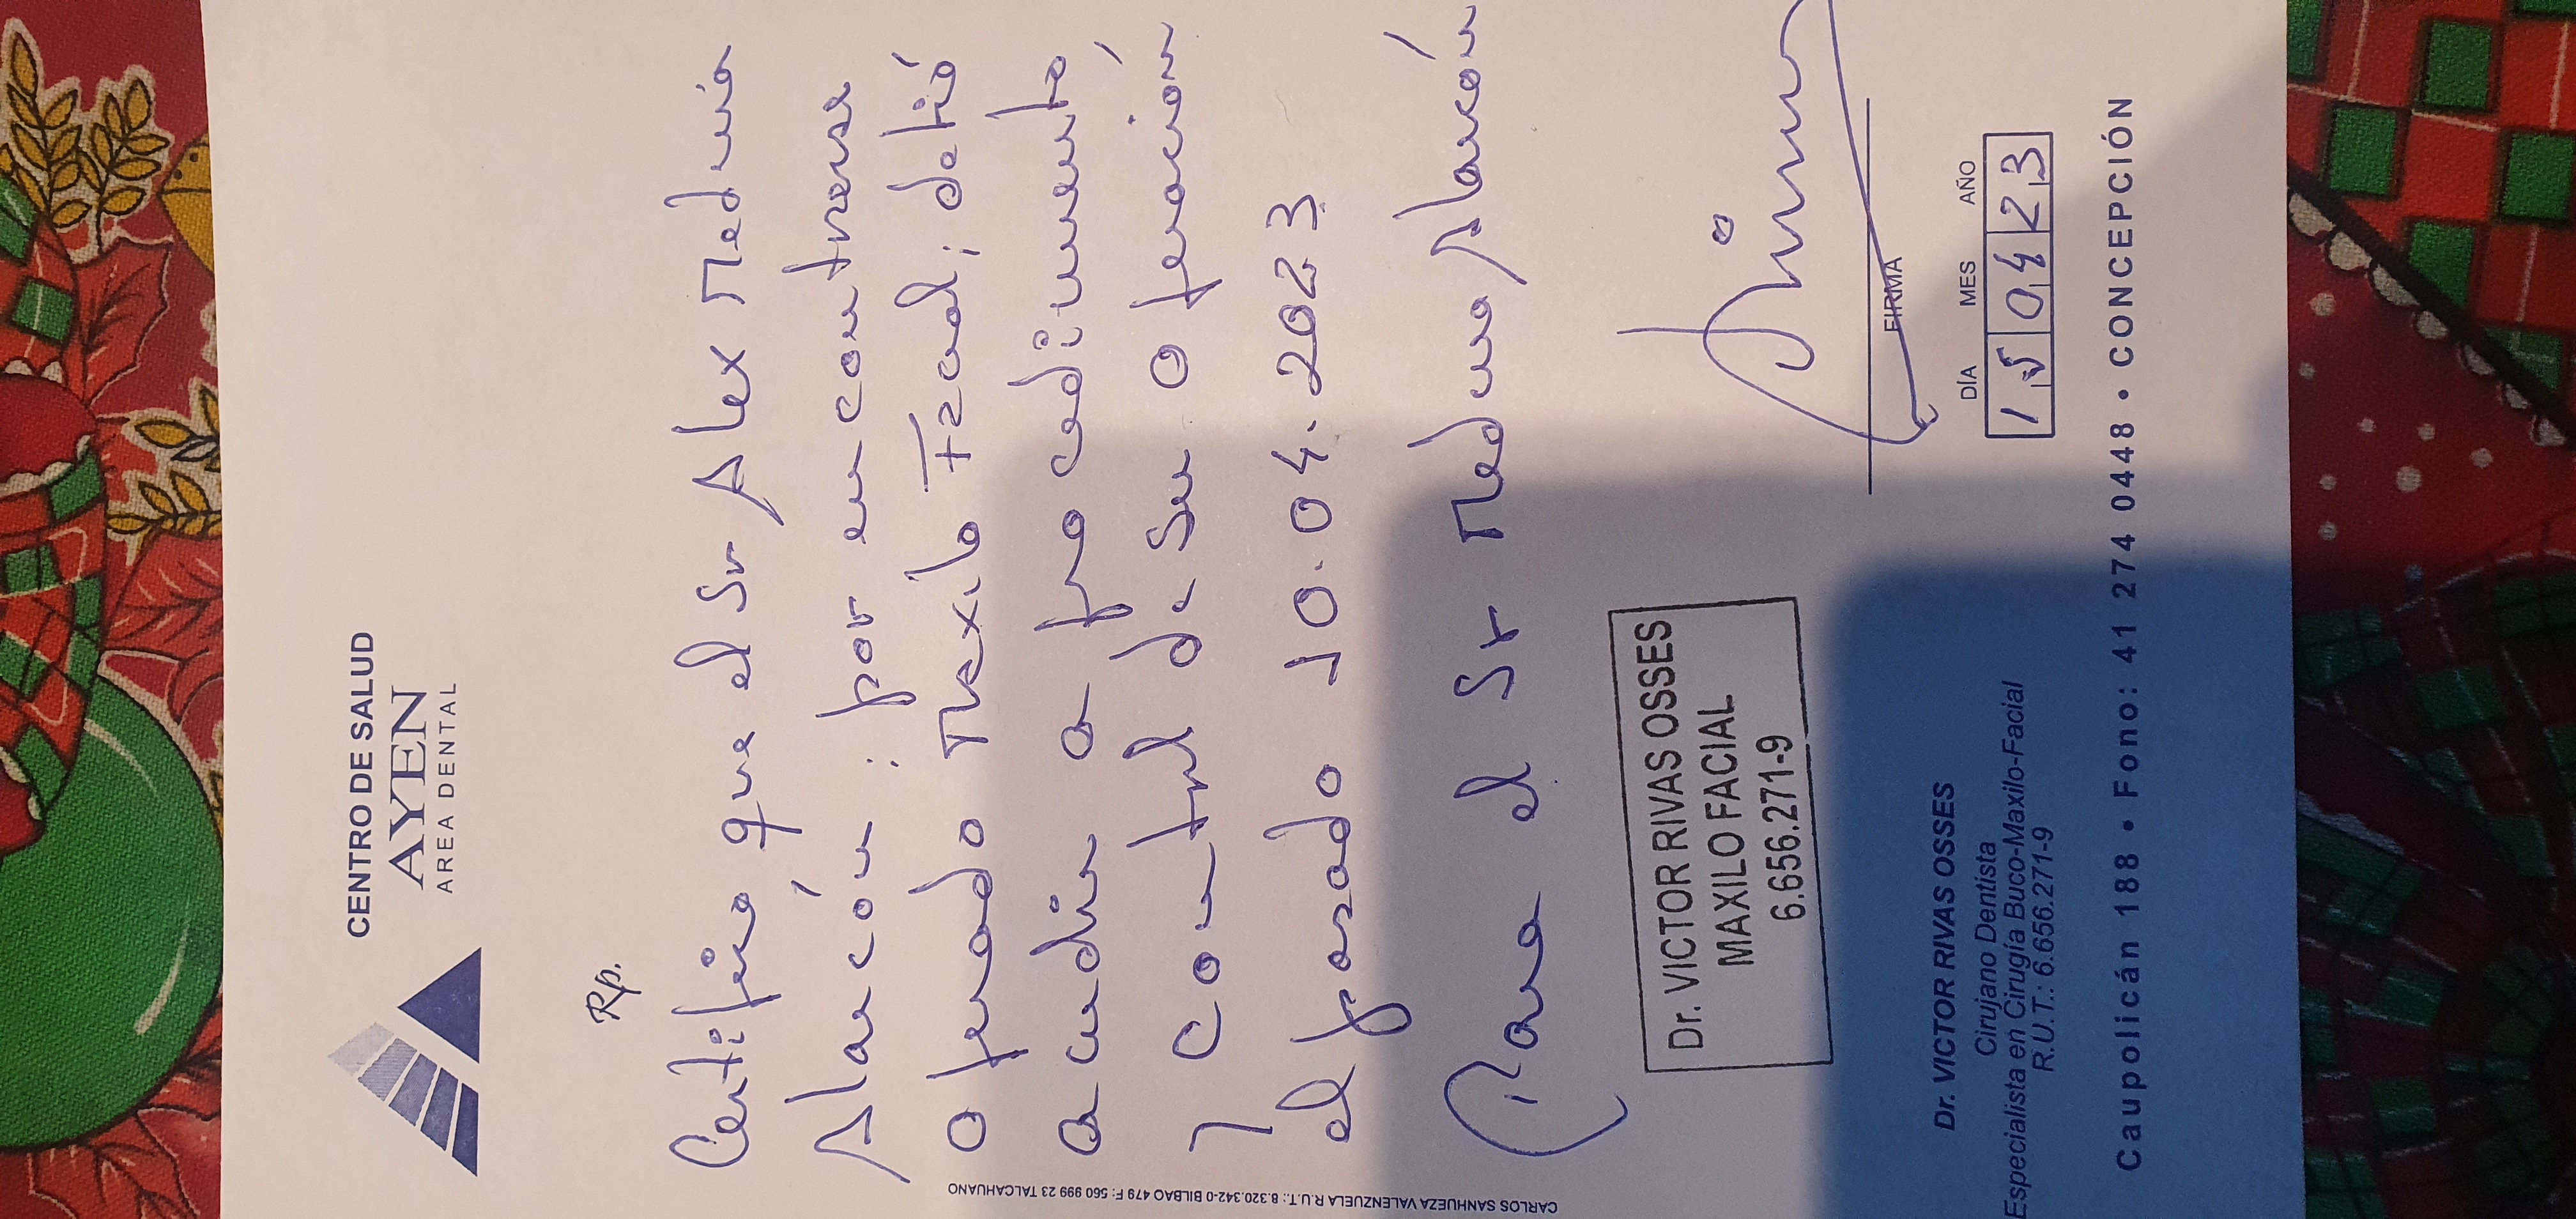 CENTRO DE SALUD
AYEN
AREA DENTAL
Rp.
Certifico, que el Sr Alex Medina
Alarcón; por encontrarse
Operado Maxilo Facial; debió
acudir a procedimiento
y Control de su Operación
el pasado 10.04.2023
Para el Sr Medina Alarcón
Dr. VICTOR RIVAS OSSES
MAXILO FACIAL
6.656.271-9
FIRMA
DÍA MES AÑO
15 04 23
Dr. VICTOR RIVAS OSSES
Cirujano Dentista
Especialista en Cirugía Buco-Maxilo-Facial
R.U.T.: 6.656.271-9
Caupolicán 188 • Fono: 41 274 0448 • CONCEPCIÓN
CARLOS SANHUEZA VALENZUELA R.U.T.: 8.320.342-0 BILBAO 479 F: 560 999 23 TALCAHUANO